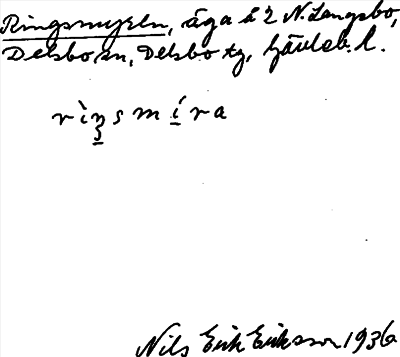 Ringsmyreln, äga å 2 N. Långsbo,
Delsbo sn, Delsbo tg, Gävleb. l.
r ì ŋ s m í r a
Nils Erik Eriksson 1936